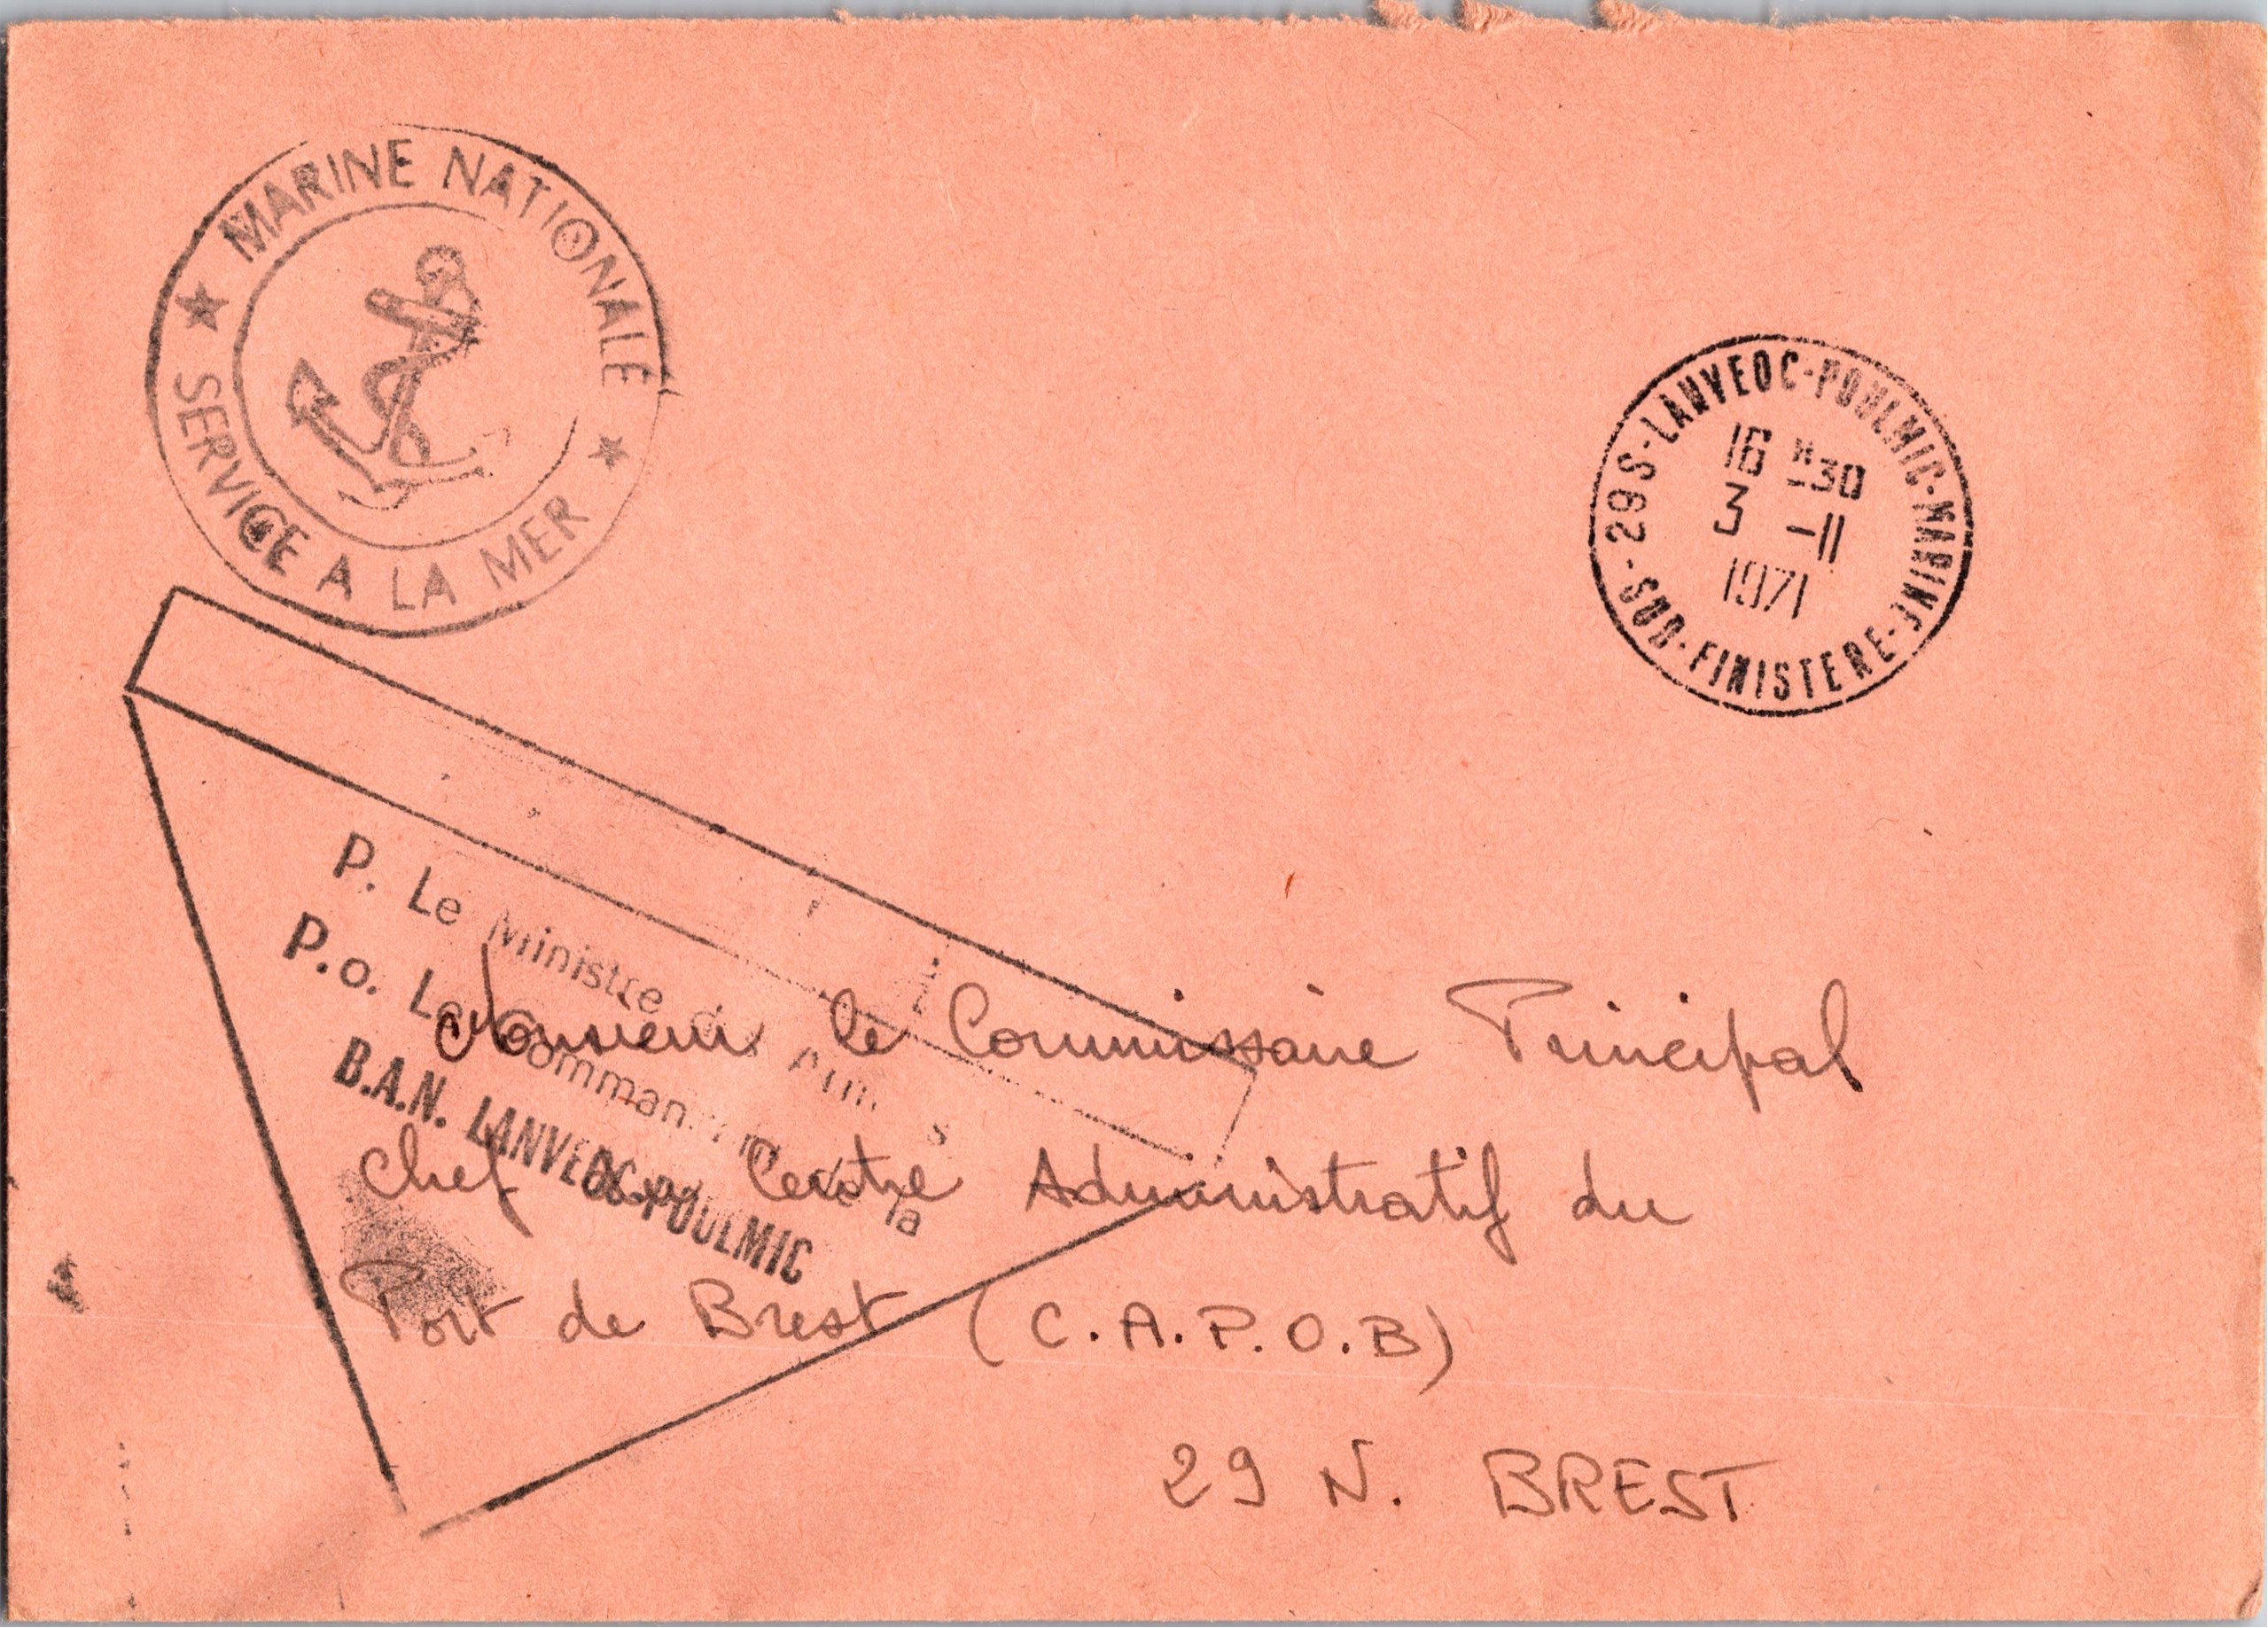 MARINE NATIONALE
SERVICE A LA MER
29S-LANVEOC-POULMIC-MARINE-
16 H 30
3 -11
1971
SUD-FINISTERE-
P. Le Ministre
P.o. Le Comman de la
B.A.N. LANVEOC-POULMIC
Monsieur le Commissaire Principal
Chef Centre Administratif du
Port de Brest (C.A.P.O.B)
29 N. BREST